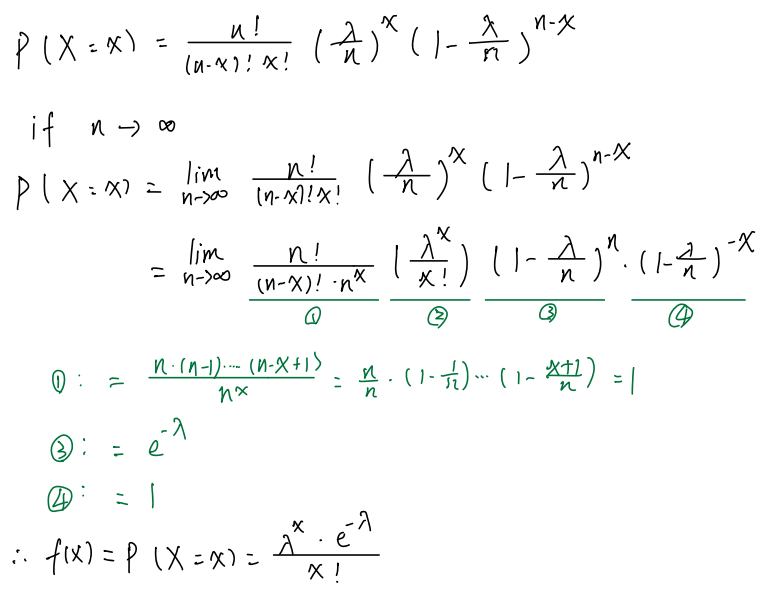 P(X=x) = n!/((n-x)! x!) (λ/n)^x (1-λ/n)^(n-x)
if n→∞
P(X=x) = lim_(n→∞) n!/((n-x)!x!) (λ/n)^x (1-λ/n)^(n-x)
= lim_(n→∞) n!/((n-x)!·n^x) (λ^x/x!) (1-λ/n)^n·(1-λ/n)^(-x)
① ② ③ ④
①: = n·(n-1)····(n-x+1)/n^x = n/n·(1-1/n)···(1-(x+1)/n) = 1
③: = e^(-λ)
④: = 1
∴ f(x) = P(X=x) = λ^x·e^(-λ)/x!